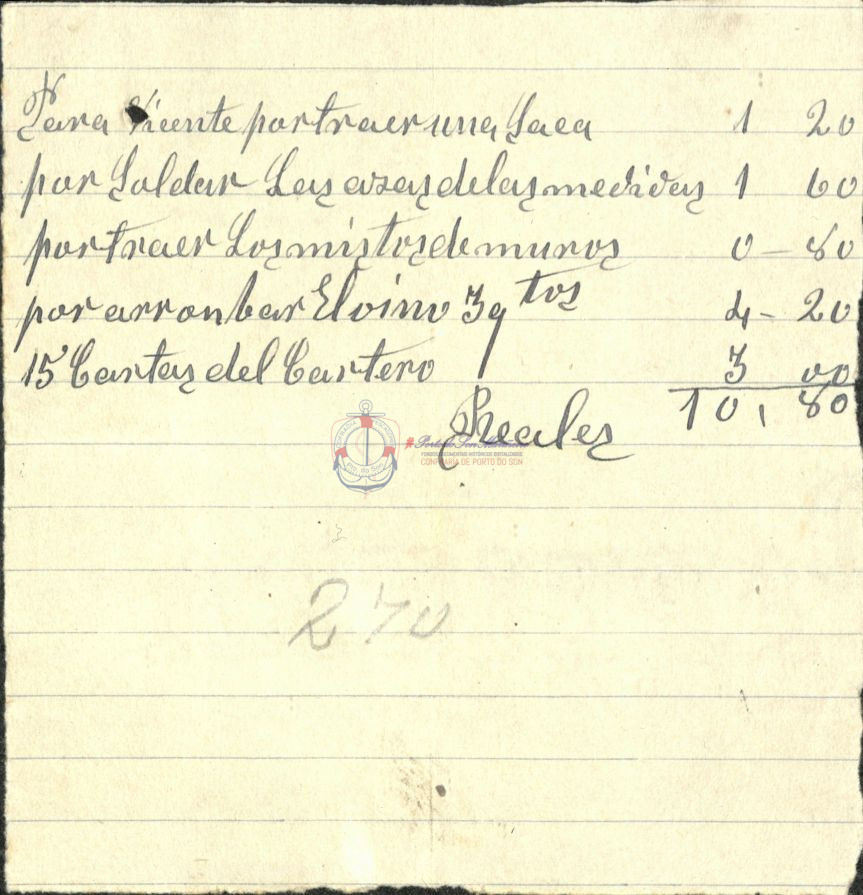 Para Vicente por traer una Saca 1 20
por Soldar Las asas de las medidas 1 60
por traer Los mistos de muros 0 - 80
por arronbar El vino 39 tos 4 - 20
15 Cartas del Cartero 3 00
Reales 10, 80
CONFRARÍA DE PORTO DO SON
270